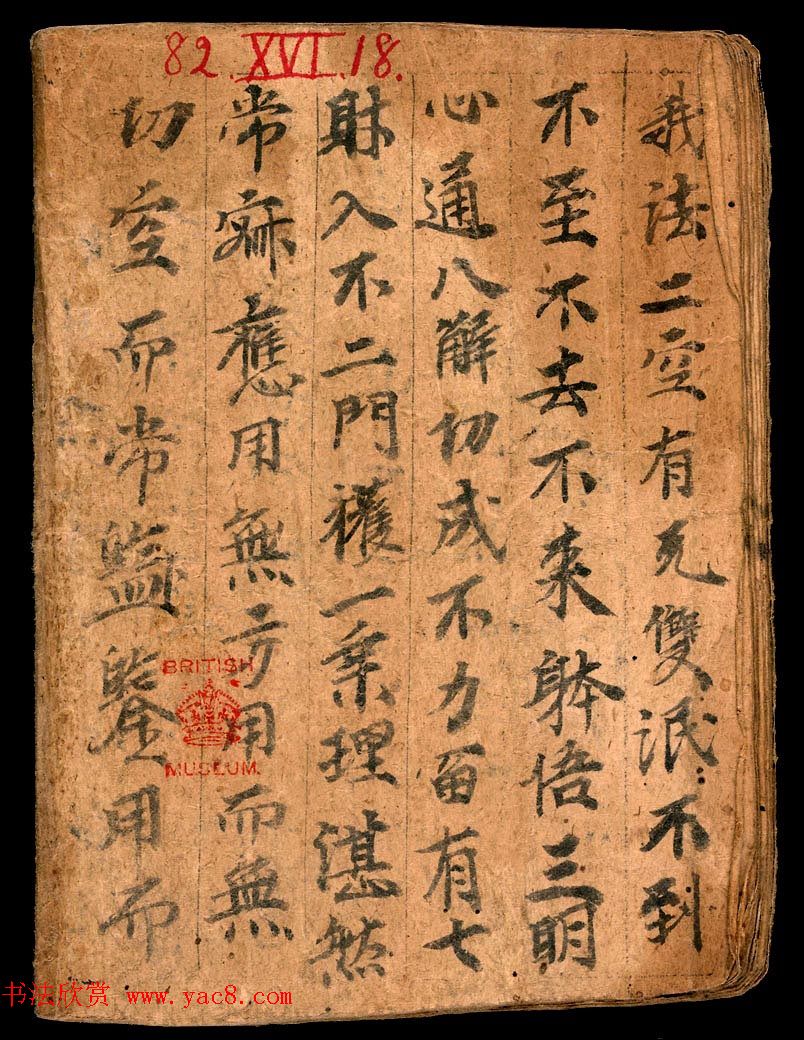 82.XVI.18.
我法二空有无雙泯不到
不至不去不来躰悟三明
心通八解切成不力畱有七
財入不二門穫一乘理湛然
常寂應用無方用而無
切空而常監鋻用而
BRITISH
MUSEUM.
书法欣赏 www.yac8.com